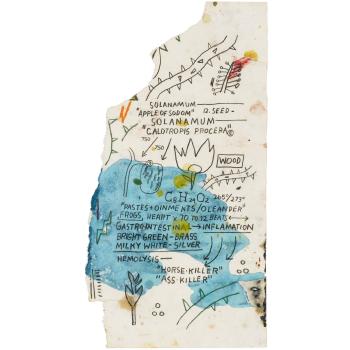 SOLANAMUM
"APPLE OF SODOM" 12. SEED-
SOLANAMUM
"CALOTROPIS PROCERA"©
750 / 750
WOOD
C₈H₂₄O₂ 268°/273°
"PASTES + OINMENTS/OLEANDER"
FROGS, HEART X 70 TO 72 BEATS
GASTROINTESTINAL → INFLAMATION
BRIGHT GREEN - BRASS
MILKY WHITE - SILVER
HEMOLYSIS—
"HORSE-KILLER"
"ASS KILLER"